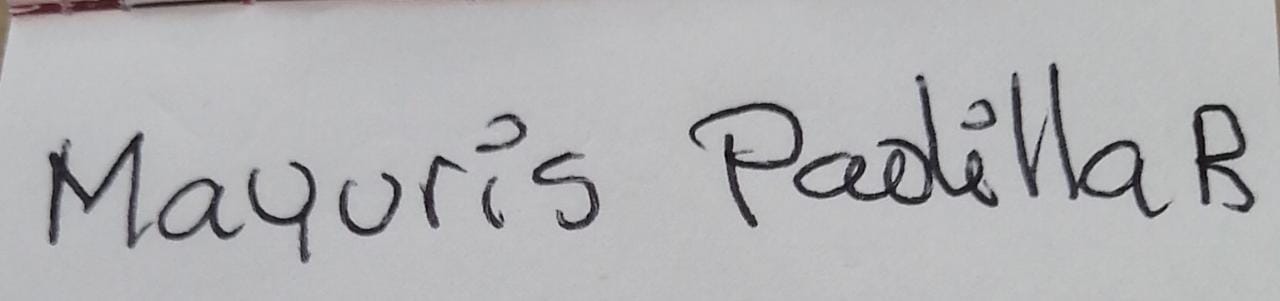 Mayuris Padilla B